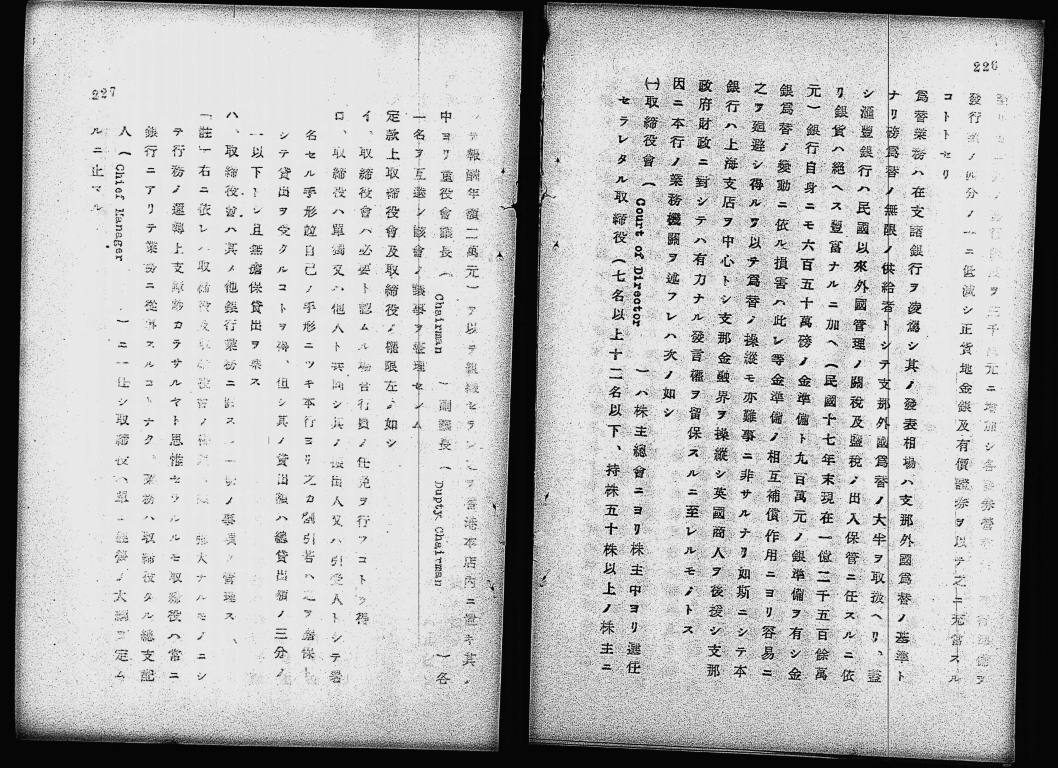 226
發行
ニ低減シ正貨地金銀及有價證券ヲ以テ之ニ充當スル
コトトセリ
爲替業務ハ在支諸銀行ヲ凌駕シ其ノ發表相場ハ支那外國爲替ノ基準ト
ナリ磅爲替ノ無限ノ供給者トシテ支那外國爲替ノ大半ヲ取扱ヘリ、蓋
シ滙豐銀行ハ民國以來外國管理ノ關稅及鹽稅ノ出入保管ニ任スルニ依
リ銀貨ハ絕ヘス豐富ナルニ加ヘ(民國十七年末現在一億二千五百餘萬
元)銀行自身ニモ六百五十萬磅ノ金準備ト九百萬元ノ銀準備ヲ有シ金
銀爲替ノ變動ニ依ル損害ハ此レ等金準備ノ相互補償作用ニヨリ容易ニ
之ヲ廻避シ得ルヲ以テ爲替ノ操縱モ亦難事ニ非サルナリ如斯ニシテ本
銀行ハ上海支店ヲ中心トシ支那金融界ヲ操縱シ英國商人ヲ後援シ支那
政府財政ニ對シテハ有力ナル發言權ヲ留保スルニ至レルモノトス
因ニ本行ノ業務機關ヲ述フレハ次ノ如シ
㈠取締役會(Court of Director)ハ株主總會ニヨリ株主中ヨリ選任
セラレタル取締役(七名以上十二名以下、持株五十株以上ノ株主ニ
227
報酬年額二萬元)ヲ以テ組織セラレ之ヲ香港本店內ニ置キ其ノ
中ヨリ重役會議長(Chairman)副議長(Dupty Chairman)各
一名ヲ互選シ該會ノ議事ヲ整理セシム
定款上取締役會及取締役ノ權限左ノ如シ
イ、取締役會ハ必要ト認ムル場合行員ノ任免ヲ行フコトヲ得
ロ、取締役ハ單獨又ハ他人ト共同シ其ノ振出人又ハ引受人トシテ署
名セル手形並自己ノ手形ニツキ本行ヨリ之カ割引若ハ之ヲ擔保ト
シテ貸出ヲ受クルコトヲ得、但シ其ノ貸出額ハ總貸出額ノ三分ノ
一以下トシ且無擔保貸出ヲ禁ス
ハ、取締役會ハ其ノ他銀行業務ニ關スル一切ノ事項ヲ管理ス、
「註」右ニ依レハ取締役及取締役會ノ權限 强大ナルモノニシ
テ行務ノ運轉上支障勘カラサルヤト思惟セラルルモ取締役ハ常ニ
銀行ニアリテ業務ニ從事スルコトナク、業務ハ取締役タル總支配
人(Chief Manager)ニ一任シ取締役ハ單ニ經營ノ大綱ヲ定ム
ルニ止マル